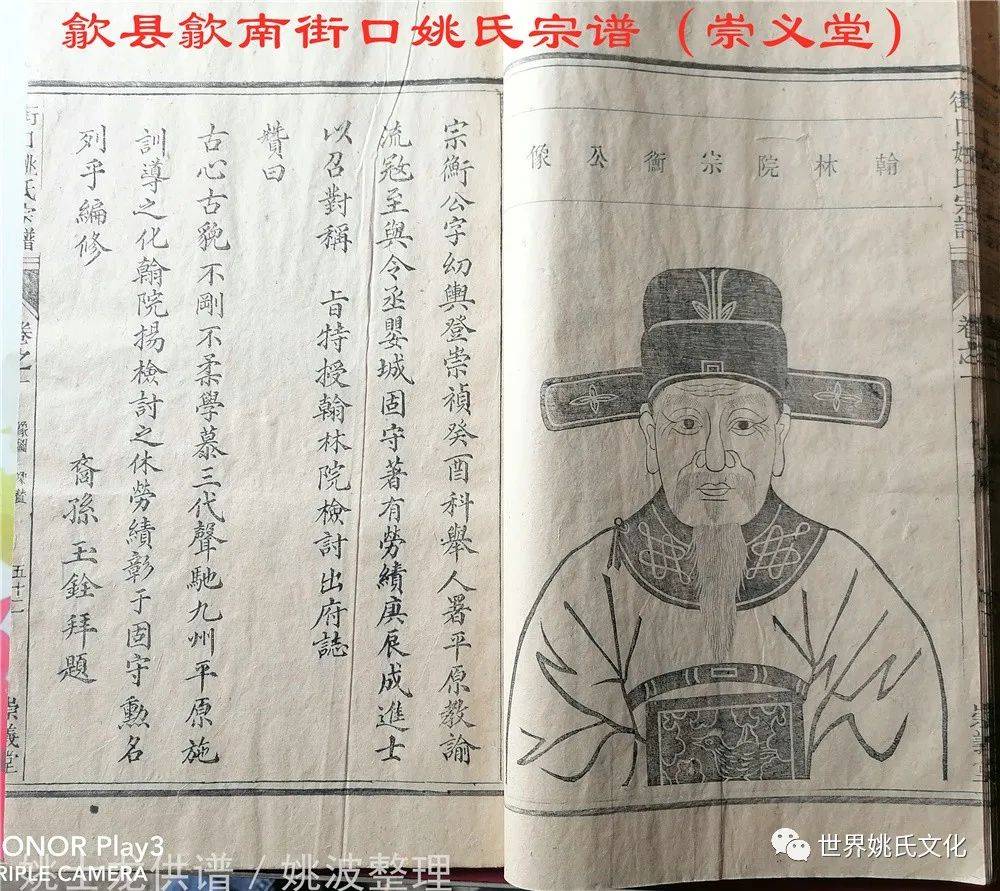 歙县歙南街口姚氏宗谱（崇义堂）
翰林院宗衡公像
宗衡公字幼輿登崇禎癸酉科舉人署平原教諭
流冦至與令丞嬰城固守著有勞績庚辰成進士
以召對稱 旨特授翰林院檢討出府誌
贊曰
古心古貌不剛不柔學慕三代聲馳九州平原施
訓導之化翰院揚檢討之休勞績彰于固守勳名
列乎編修
裔孫玉銓拜題
街口姚氏宗譜
卷之一
五十二
崇義堂
街口姚氏宗譜
卷之一
ONOR Play3
RIPLE CAMERA
姚士龙供谱 / 姚波整理
世界姚氏文化